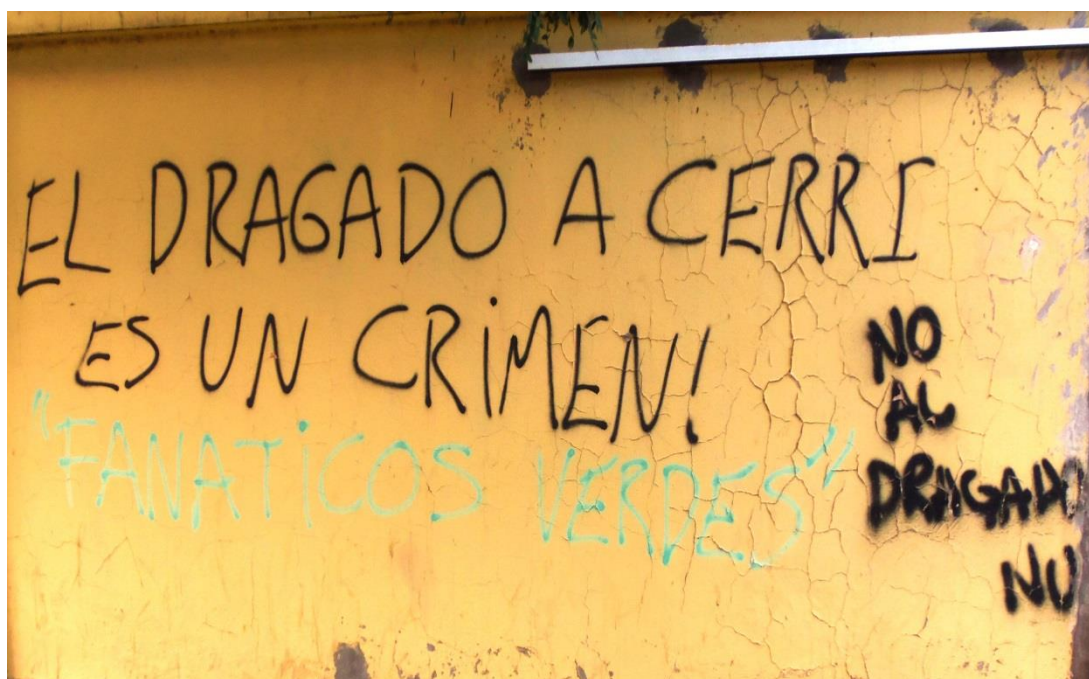 EL DRAGADO A CERRI
ES UN CRiMEN!
"FANATiCOS VERDES"
NO
AL
DRAGADO
NU